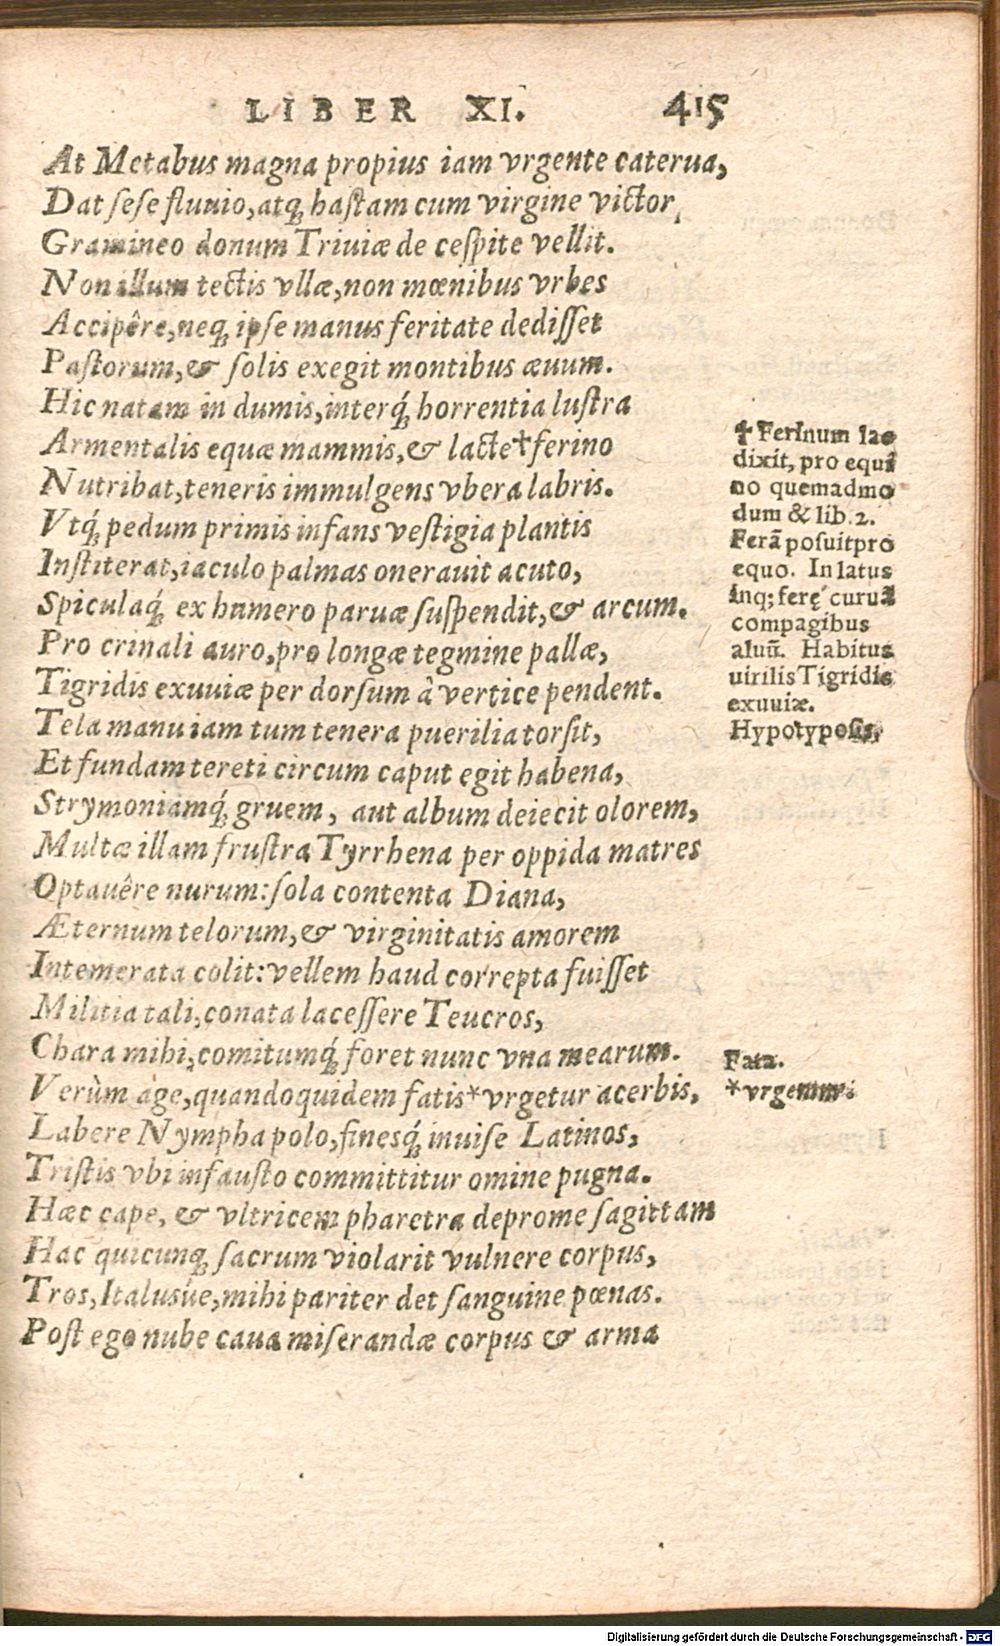 LIBER XI. 415
At Metabus magna propius iam vrgente caterua,
Dat ſeſe fluuio, atq; haſtam cum virgine victor,
Gramineo donum Triuiæ de ceſpite vellit.
Non illum tectis vllæ, non mœnibus vrbes
Accipêre, neq; ipſe manus feritate dediſſet
Paſtorum, & ſolis exegit montibus æuum.
Hic natam in dumis, interq́; horrentia luſtra
Armentalis equæ mammis, & lacte † ferino
Nutribat, teneris immulgens vbera labris.
Vtq́; pedum primis infans veſtigia plantis
Inſtiterat, iaculo palmas onerauit acuto,
Spiculaq́; ex humero paruæ ſuſpendit, & arcum.
Pro crinali auro, pro longæ tegmine pallæ,
Tigridis exuuiæ per dorſum à vertice pendent.
Tela manu iam tum tenera puerilia torſit,
Et fundam tereti circum caput egit habena,
Strymoniamq́; gruem, aut album deiecit olorem,
Multæ illam fruſtra Tyrrhena per oppida matres
Optauêre nurum: ſola contenta Diana,
Æternum telorum, & virginitatis amorem
Intemerata colit: vellem haud correpta fuiſſet
Militia tali, conata laceſſere Teucros,
Chara mihi, comitumq́; foret nunc vna mearum.
Verùm age, quandoquidem fatis * vrgetur acerbis,
Labere Nympha polo, fineſq́; inuiſe Latinos,
Triſtis vbi infauſto committitur omine pugna.
Hæc cape, & vltricem pharetra deprome ſagittam
Hac quicunq; ſacrum violarit vulnere corpus,
Tros, Italuſúe, mihi pariter det ſanguine pœnas.
Poſt ego nube caua miſerandæ corpus & arma
† Ferinum lac
dixit, pro equi
no quemadmo
dum & lib. 2.
Ferã poſuit pro
equo. In latus
inq; ferę curuã
compagibus
aluũ. Habitus
uirilis Tigridis
exuuiæ.
Hypotypoſis.
Fata.
* vrgemur.
Digitalisierung gefördert durch die Deutsche Forschungsgemeinschaft - DFG